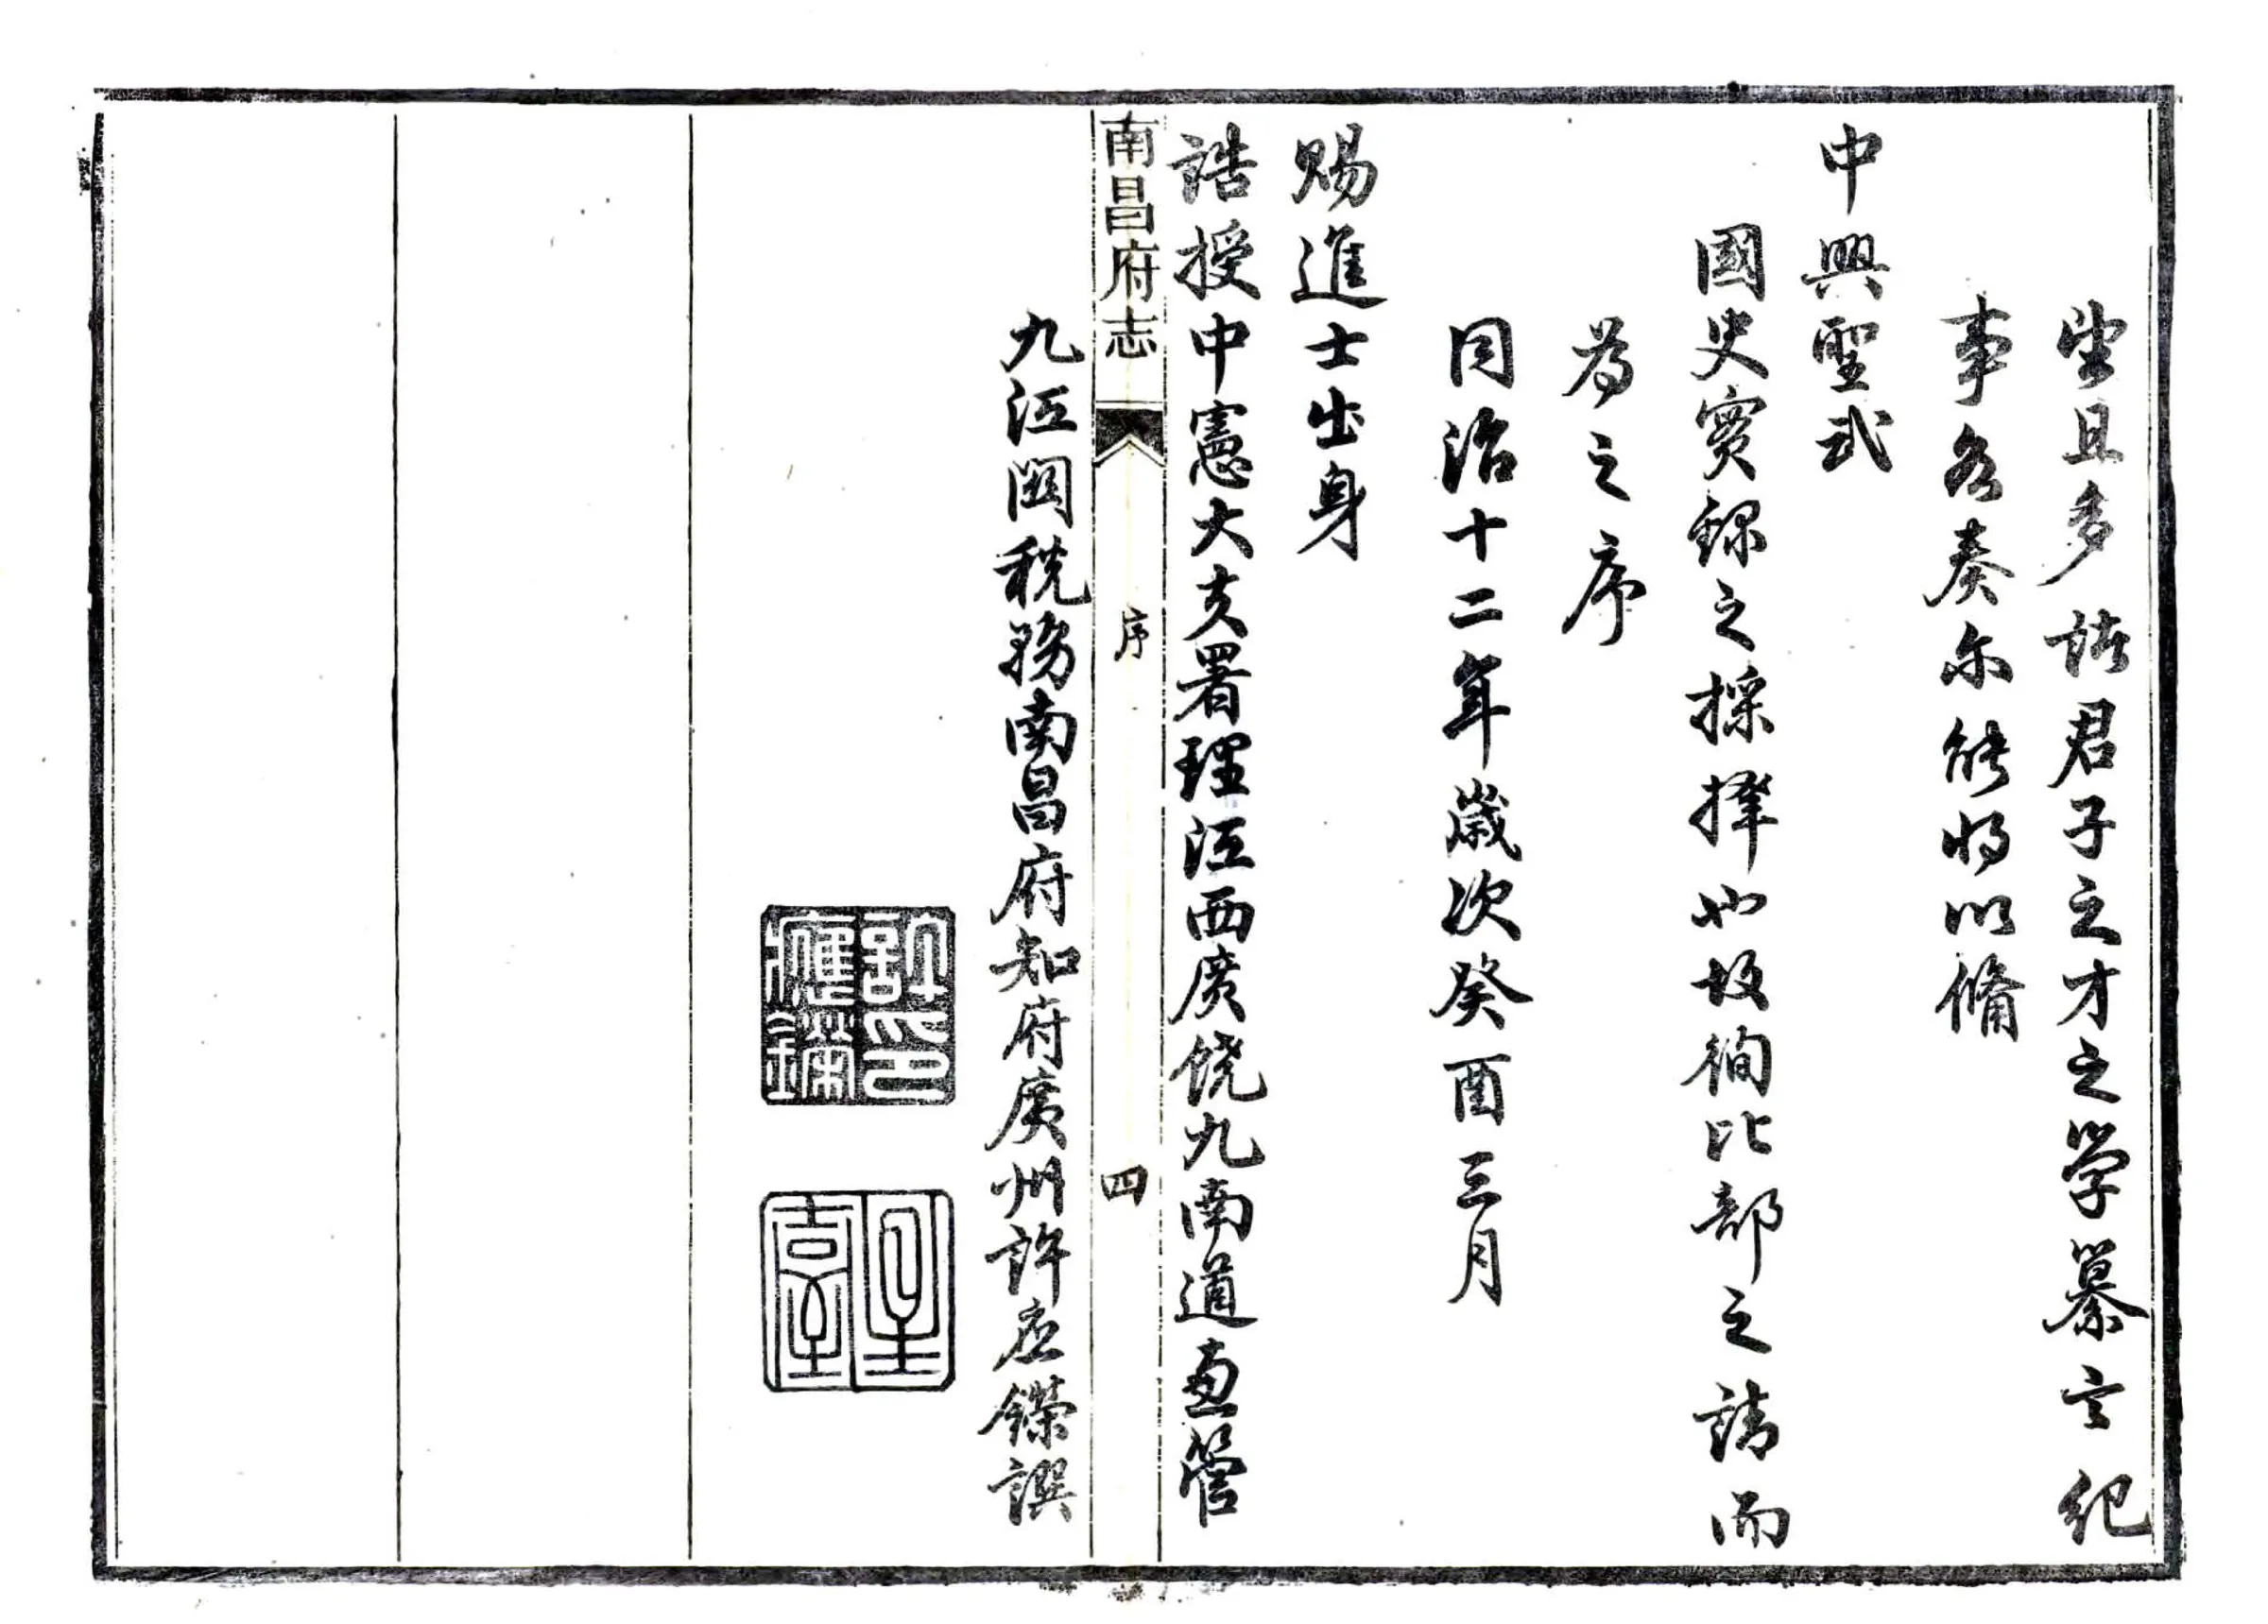 望且多諸君子之才之學纂言紀
事各奏尔能將以脩
中興聖武
國史實錄之採擇也故徇比部之請而
為之序
同治十二年歲次癸酉三月
賜進士出身
誥授中憲大夫署理江西廣饒九南道兼管
南昌府志
序
四
九江関稅務南昌府知府廣州許应鑅譔
許印應鑅
星臺